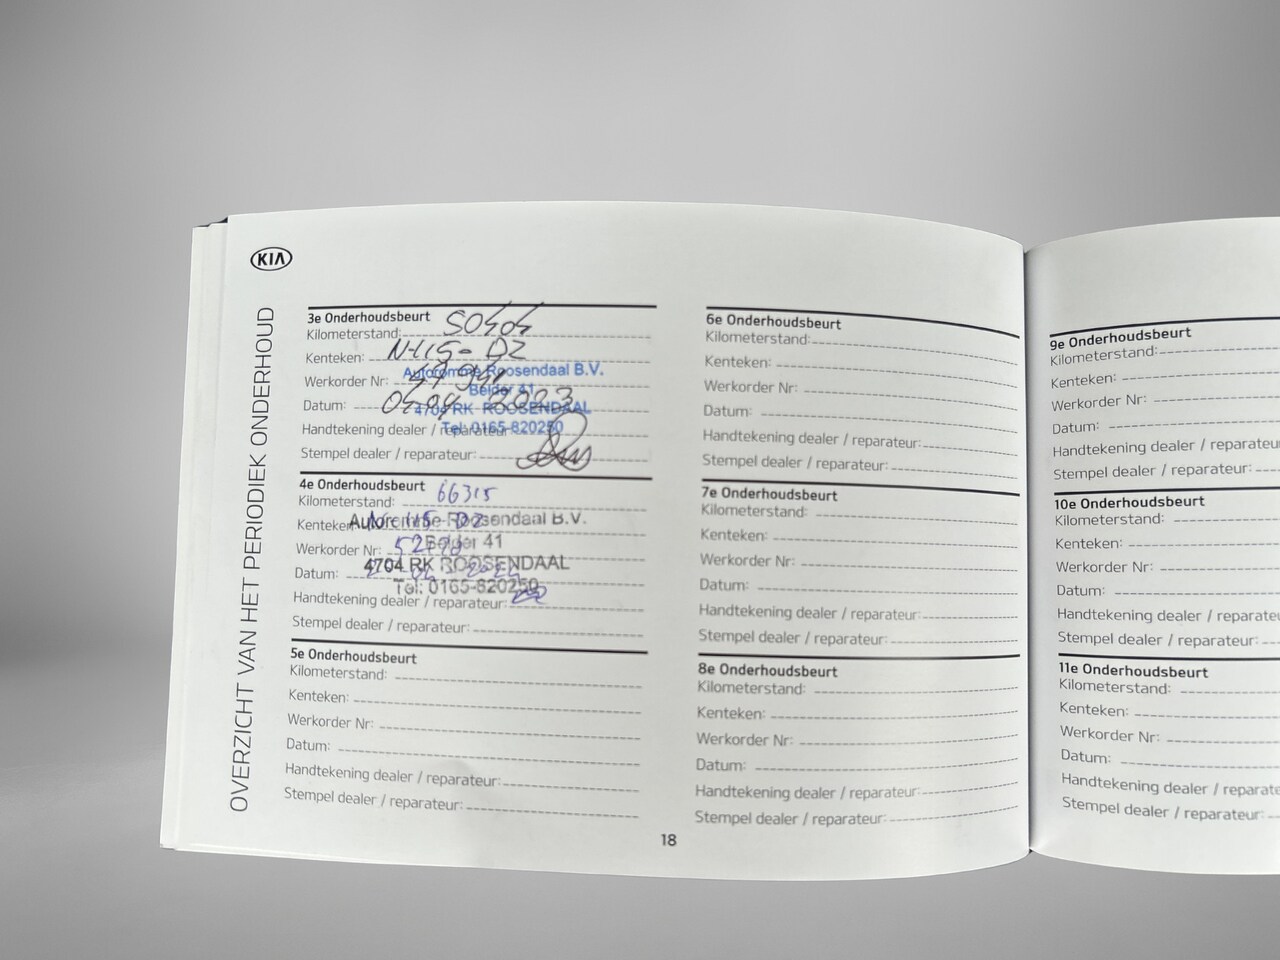 KIA
OVERZICHT VAN HET PERIODIEK ONDERHOUD
3e Onderhoudsbeurt
Kilometerstand: 50404
Kenteken: N-415-DZ
Werkorder Nr:
Datum: 2023
Handtekening dealer / reparateur:
Stempel dealer / reparateur:
Roosendaal B.V.
Belder 41
4704 RK ROOSENDAAL
Tel: 0165-820250
4e Onderhoudsbeurt
Kilometerstand: 66315
Kenteken:
Werkorder Nr:
Datum:
Handtekening dealer / reparateur:
Stempel dealer / reparateur:
Roosendaal B.V.
Belder 41
4704 RK ROOSENDAAL
Tel: 0165-820250
5e Onderhoudsbeurt
Kilometerstand:
Kenteken:
Werkorder Nr:
Datum:
Handtekening dealer / reparateur:
Stempel dealer / reparateur:
6e Onderhoudsbeurt
Kilometerstand:
Kenteken:
Werkorder Nr:
Datum:
Handtekening dealer / reparateur:
Stempel dealer / reparateur:
7e Onderhoudsbeurt
Kilometerstand:
Kenteken:
Werkorder Nr:
Datum:
Handtekening dealer / reparateur:
Stempel dealer / reparateur:
8e Onderhoudsbeurt
Kilometerstand:
Kenteken:
Werkorder Nr:
Datum:
Handtekening dealer / reparateur:
Stempel dealer / reparateur:
18
9e Onderhoudsbeurt
Kilometerstand:
Kenteken:
Werkorder Nr:
Datum:
Handtekening dealer / reparateu
Stempel dealer / reparateur:
10e Onderhoudsbeurt
Kilometerstand:
Kenteken:
Werkorder Nr:
Datum:
Handtekening dealer / reparateu
Stempel dealer / reparateur:
11e Onderhoudsbeurt
Kilometerstand:
Kenteken:
Werkorder Nr:
Datum:
Handtekening dealer / reparate
Stempel dealer / reparateur: